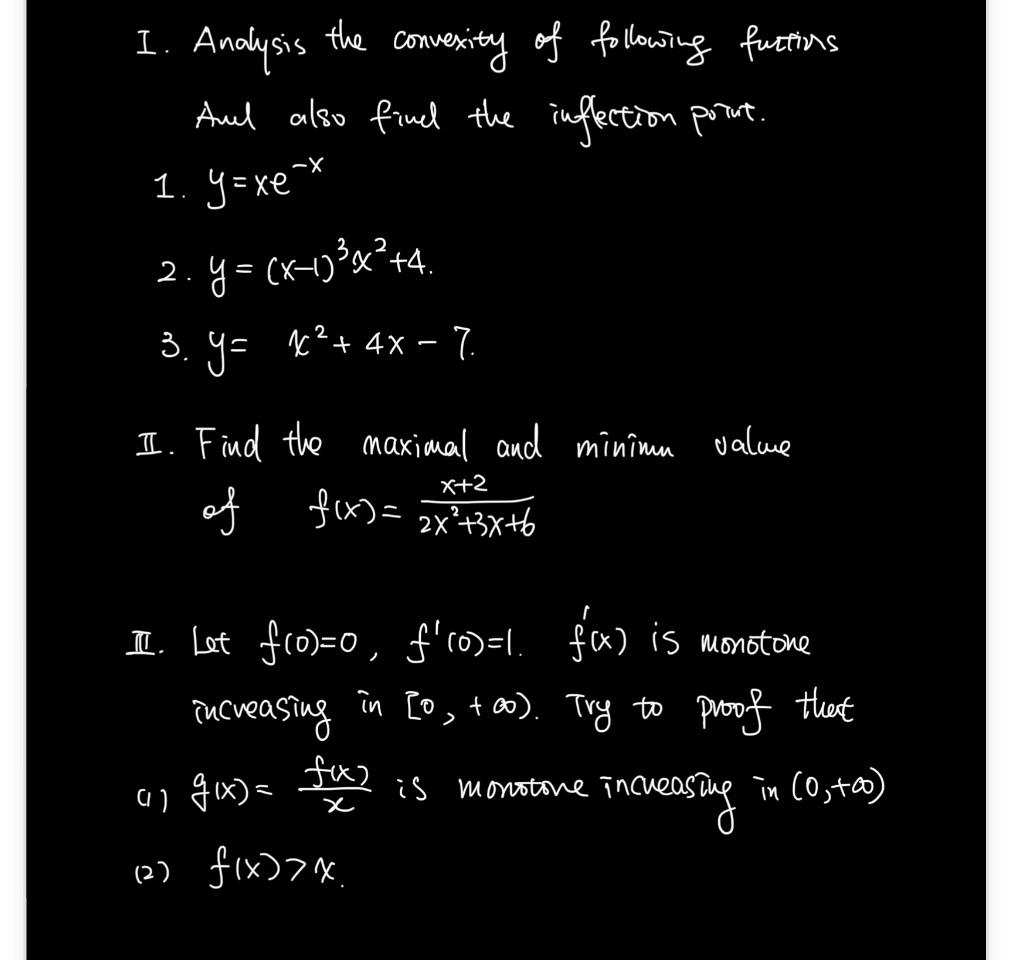 I. Analysis the convexity of following fuctions
And also find the inflection point.
1. y=xe^{-x}
2. y=(x-1)^3x^2+4.
3. y= x^2+4x-7.
II. Find the maximal and minimu value
of f(x)=\frac{x+2}{2x^2+3x+6}
III. Let f(0)=0, f'(0)=1. f'(x) is monotone
increasing in [0,+∞). Try to proof that
(1) g(x)=\frac{f(x)}{x} is monotone increasing in (0,+∞)
(2) f(x)>x.